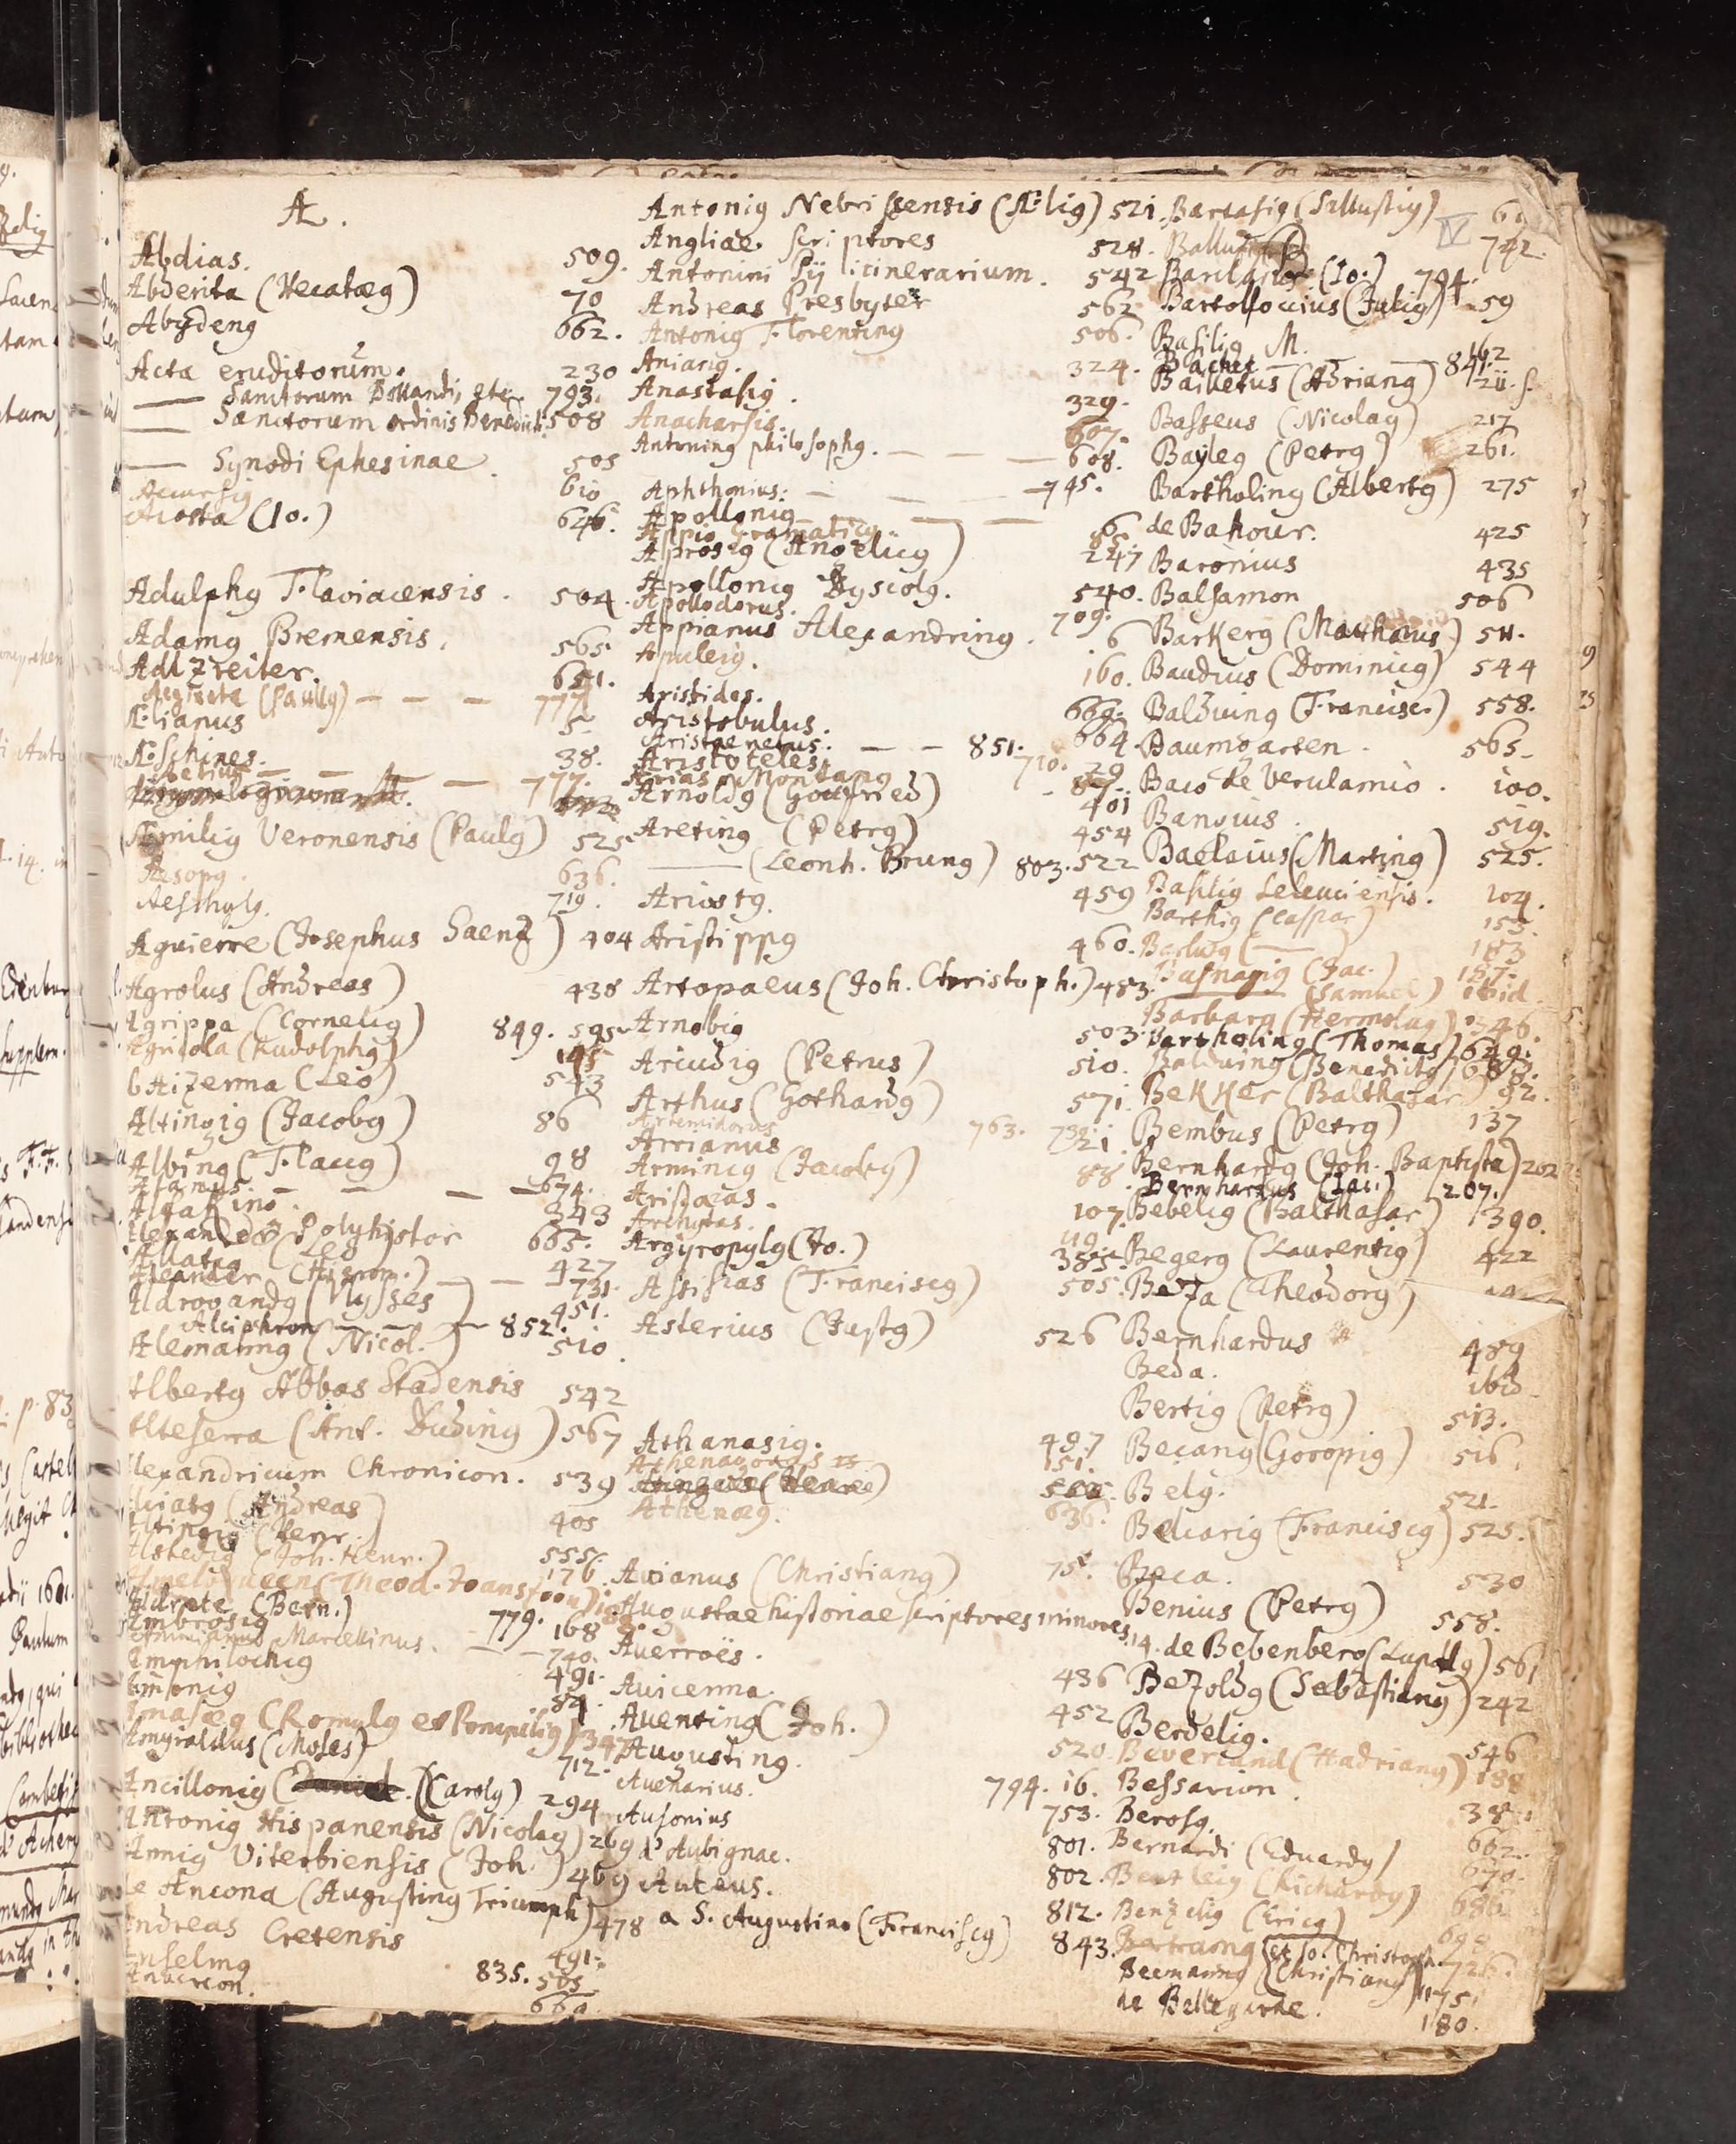 A.
Abdias. 509.
Abderita (Hecatæg) 70
Abydeng 662.
Acta eruditorum. 230
— Sanctorum Bollandi, 793.
— Sanctorum ordinis Benedicti. 508
— Synodi Ephesinae. 505
Acursig 610
Acosta (Io.) 646.
Adulphg Flaviacensis. 504.
Adamg Bremensis. 565
Adlzreiter. 651.
Aegineta (Paulg) — — — 777.
Ælianus 5.
Æschines. 38.
Aetius — — — 777.
Æmilig Veronensis (Paulg) 525
Aesopg. 636.
Aeschylg. 719.
Aguierre (Josephus Saenz) 404
Agrolus (Andreas) 438
Agrippa (Cornelig) 849. 595
Agricola (Rudolphg) 145
ab Aizema (Leo) 543
Altingig (Jacobg) 86
Albing (Flacg) 98
— — — 674.
Alfakino. 343
Alexander Polyhistor 665.
Allatig (Leo) 427
Aleander (Hieron.) — — 731.
Aldrovandg (Ulysses) 451.
Alciphron — — 852.
Alemanng (Nicol.) 510.
Albertg Abbas Stadensis 542
Alteserra (Ant. Dading) 567
Alexandricum Chronicon. 539
Alciatg (Andreas) 405
Altingig (Henr.) 555.
Alstedig (Joh. Henr.) 176.
Almeloveen (Theod. Joansson)
Aldrete (Bern.) 779.
Ambrosig 168
Ammianus Marcellinus. — — 740.
Amphilochig 491.
Ammonig 84.
Amasæg (Romulg et Pompilig) 347
Amyraldus (Moses) 712.
Ancillonig (Carolg) 294
Antonig Hispanensis (Nicolag) 269
Annig Viterbiensis (Joh.) 469
de Ancona (Augusting Triumph) 478
Andreas Cretensis 491.
Anselmg 835. 505
Anacreon. 660.
Antonig Nebrissensis (Ælig) 521.
Angliae scriptores 528.
Antonini Pij itinerarium. 542
Andreas Presbyter 562
Antonig Florenting 506.
Aniang. 324.
Anastasig. 329.
Anacharsis. 607.
Antoning philosophg. — — — 608.
Aphthonius: — — — 745.
Apollonig — — — 6
Appio Gramaticg 85.
Aprosig (Angelicg) 247
Apollonig Dyscolg. 540.
Apollodorus. 709.
Appianus Alexandring. 6
Apuleig. 160.
Aristides. 669.
Aristobulus. 664.
Aristaenetus. — — 851.
Aristoteles. 710. 29
Arias Montang 87.
Arnoldg (Gotfried) 401
Areting (Petrg) 454
— (Leonh. Brung) 803. 522
Ariostg. 459
Aristippg 460.
Artopaeus (Joh. Christoph.) 483.
Arnobig 503.
Arcudig (Petrus) 510.
Arthus (Gothardg) 571.
Artemidorus 763. 738.
Arrianus 21
Arminig (Jacobg) 88.
Aristæas. 107.
Archytas. 119.
Argyropylg (Jo.) 385.
Assisias (Franciscg) 505.
Asterius (Justg) 526
Athanasig. 497
Athenagoras 151.
Athenæg. 636.
Avianus (Christiang) 75.
Augustae historiae scriptores minores 14.
Averroës. 436
Avicenna. 452
Aventing (Joh.) 520.
Augusting. 794. 16.
Avenarius. 753.
Ausonius 801.
d'Aubignac. 802.
Auteus. 812.
a S. Augustino (Franciscg) 843.
Bartasig (Sallustig)
742.
Barclajus (Io.) 794.
Bartoloccius (Julig) 59
Basilig M. 162
Bachet — 841.
Bailletus (Adriang) 211.
Basseus (Nicolag) 217
Bayleg (Petrg) 261.
Bartholing (Albertg) 275
de Bahour. 425
Baronius 435
Balsamon 506
Barkerg (Mathæus) 511.
Baudius (Dominicg) 544
Balduing (Francisc.) 558.
Baumgarten. 565.
Baco de Verulamio. 100.
Bangius. 519.
Baclaius (Marting) 525.
Basilig Seleuciensis. 104.
Barthig (Caspar) 155.
Barlæg (—) 183
Basnagig (Jac.) 157.
(Samuel) ibid
Barbarg (Hermolag) 346.
Bartholing (Thomas) 649.
Balduing (Benedictg) 683.
Bekker (Balthasar) 82.
Bembus (Petrg) 137
Bernhardg (Joh. Baptista) 202
Bernhardus (Jac.) 207.
Bebelig (Balthasar) 390.
Begerg (Laurentig) 422
Beza (Theodorg)
Bernhardus 489
Beda. ibid.
Bertig (Petrg) 513.
Becang (Goropig) 516.
Belg. 521.
Belcarig (Franciscg) 525.
Beca. 530
Benius (Petrg) 558.
de Bebenberg (Lupoldg) 561
Bezoldg (Sebastiang) 242
Berdelig. 546
Beverland (Hadriang) 188
Bessarion. 38
Berosg. 662.
Bernardi (Eduardg) 670.
Bentleig (Richardg) 686.
Benzelig (Ericg)
Bartramg et Jo. Christoph. 726.
Beemanng (Christiang) 1175.
de Bellegarde. 180.